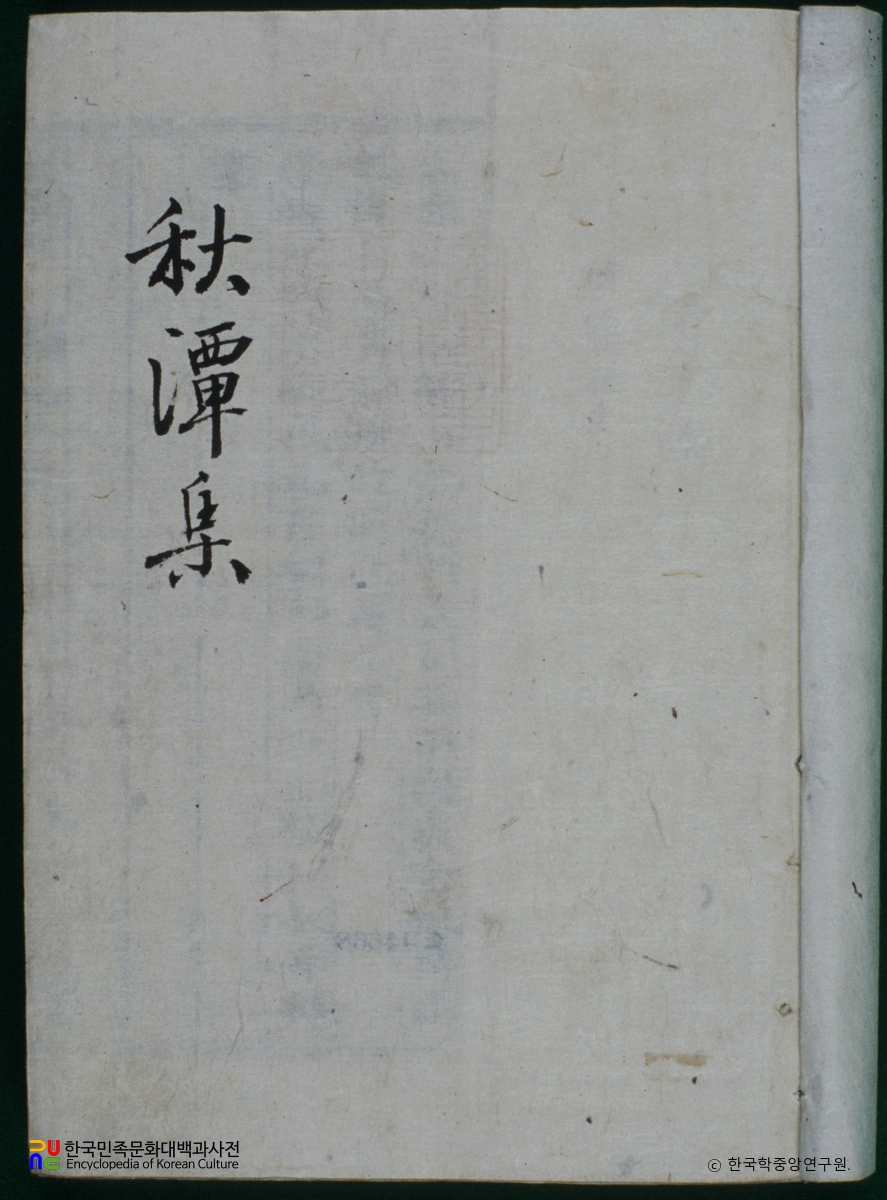 秋潭集
한국민족문화대백과사전
Encyclopedia of Korean Culture
© 한국학중앙연구원.